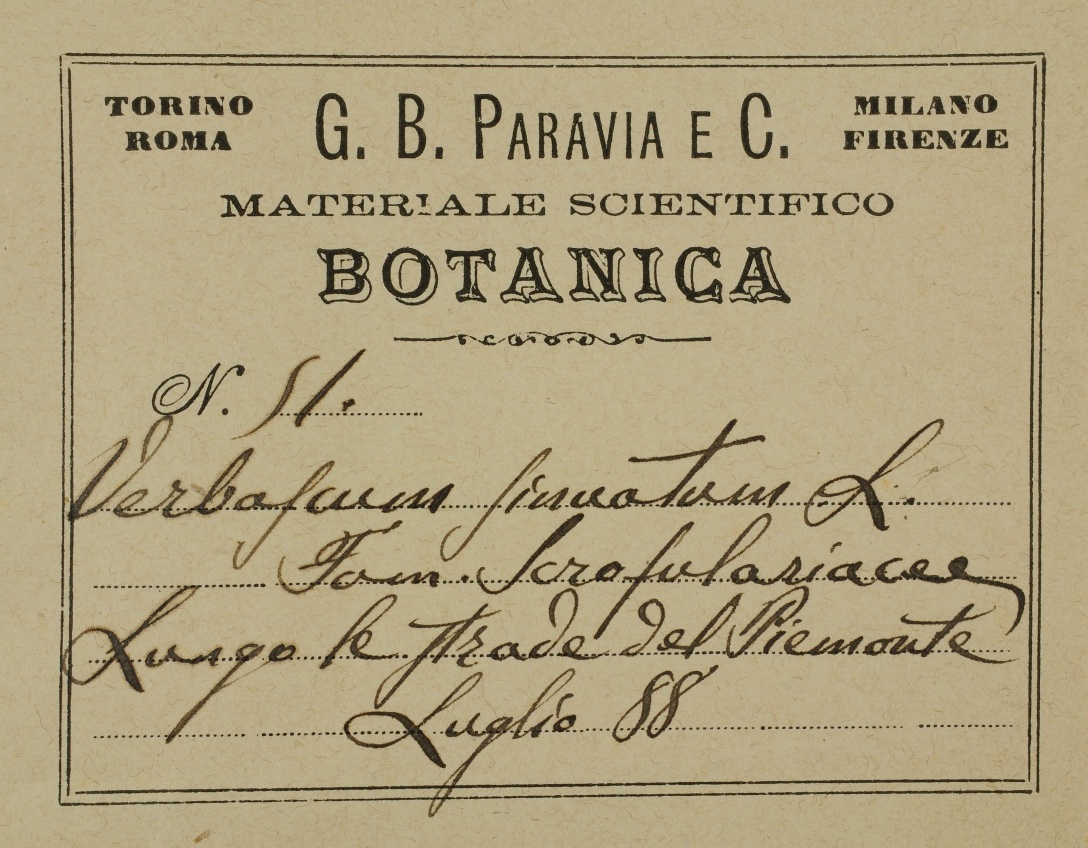 TORINO ROMA G. B. PARAVIA E C. MILANO FIRENZE
MATERIALE SCIENTIFICO
BOTANICA
N. 51.
Verbascum sinuatum L.
Fam. Scrofulariacee
Lungo le strade del Piemonte
Luglio 88